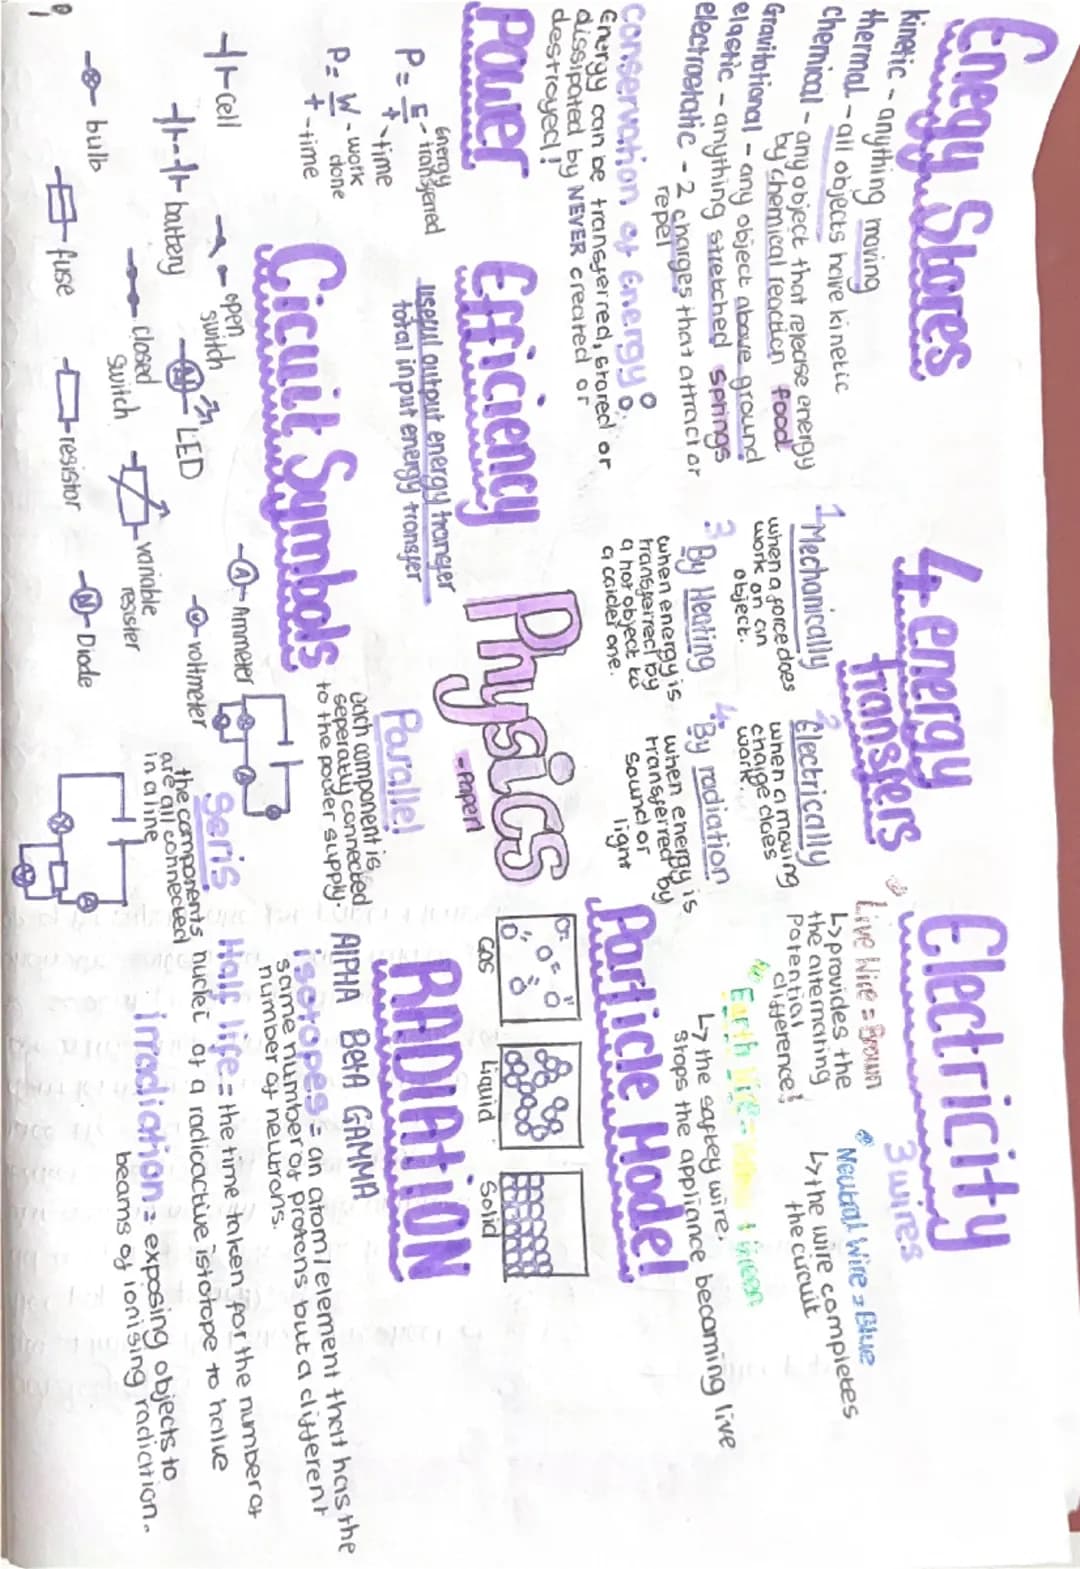 Enegy Stores
kinetic - anything moving
thermal - all objects have kinetic
chemical - any object that release energy
by chemical reaction food
Gravitational - any object above ground
elastic - anything stretched springs
electrostatic - 2 charges that attract or
repel
conservation of Energy
Energy can be transferred, stored or
dissipated by NEVER created or
destroyed!
4 energy
transfers
1 Mechanically
when a force does
work on an
object.
2 Electrically
when a moving
charge does
work.
3 By Heating
when energy is
transferred by
a hot object to
a cooler one.
4. By radiation
when energy is
transferred by
sound or
light
Electricity
3 wires
Live Wire = Brown
↳ provides the
the alternating
potential
difference!
Neutral Wire = Blue
↳ the wire completes
the circuit
Earth Wire - Green
↳ the saftey wire.
stops the appliance becoming live
Power
P = E - Energy transferred
t - time
P = W - work done
t - time
Efficiency
useful output energy transfer
total input energy transfer
Physics
- Paper 1
Particle Model
Gas
Liquid
Solid
Cicuit Symbols
cell
open
switch
A Ammeter
battery
LED
V voltmeter
closed
switch
variable
resister
bulb
fuse
resistor
Diode
Parallel
each component is
seperatly connected
to the power supply.
Seris
the components
are all connected
in a line
RADIATION
AlPHA BetA GAMMA
isotopes = an atom/element that has the
same number of protons but a different
number of neutrons.
Half life = the time taken for the number of
nuclei of a radioactive istotope to halve
irradiation = exposing objects to
beams of ionising radiation.